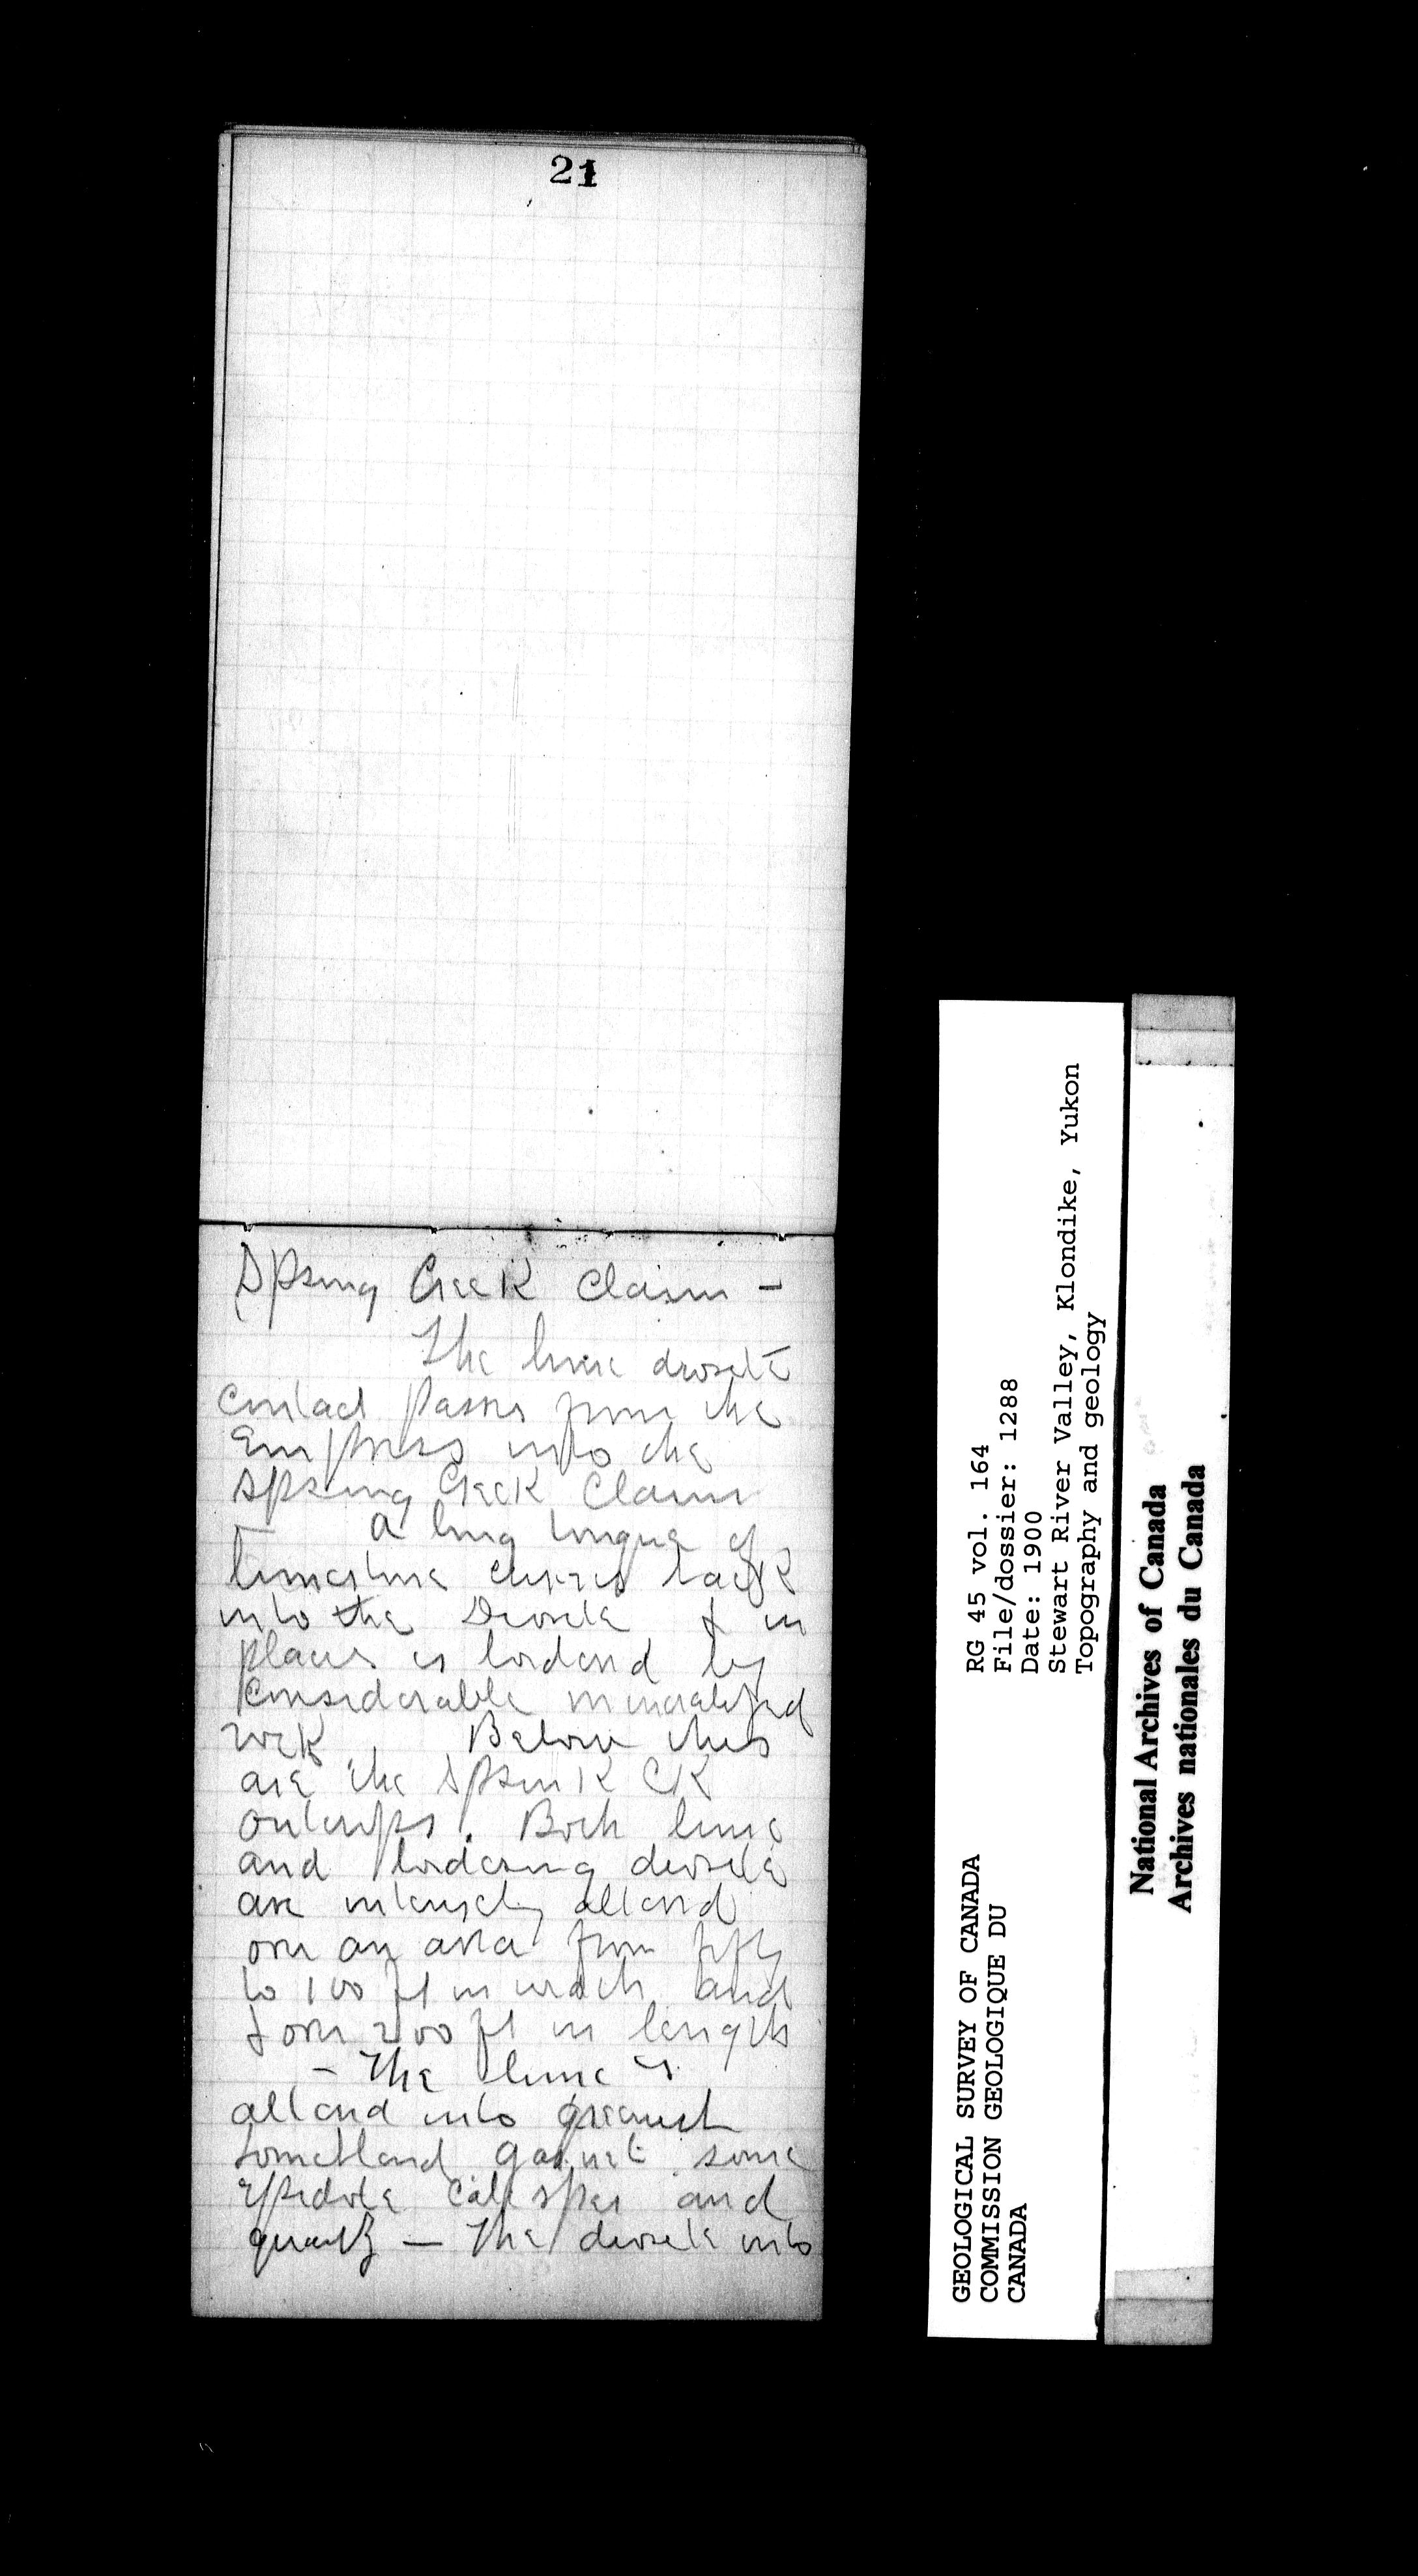 21
Spring Creek Claim –
The lime diorite
contact passes from the
Empress into the
Spring Creek Claim
A long tongue of
limestone curves back
into the Diorite & in
places is bordered by
considerable mineralized
rock. Below this
are the Spring CK
outcrops. Both lime
and bordering diorite
are intensely altered
over an area from fifty
to 100 ft in width and
over 200 ft in length
– The lime is
altered into greenish
garnet some
epidote calcspar and
quartz – The diorite into
GEOLOGICAL SURVEY OF CANADA
COMMISSION GEOLOGIQUE DU
CANADA
RG 45 vol. 164
File/dossier: 1288
Date: 1900
Stewart River Valley, Klondike, Yukon
Topography and geology
National Archives of Canada
Archives nationales du Canada